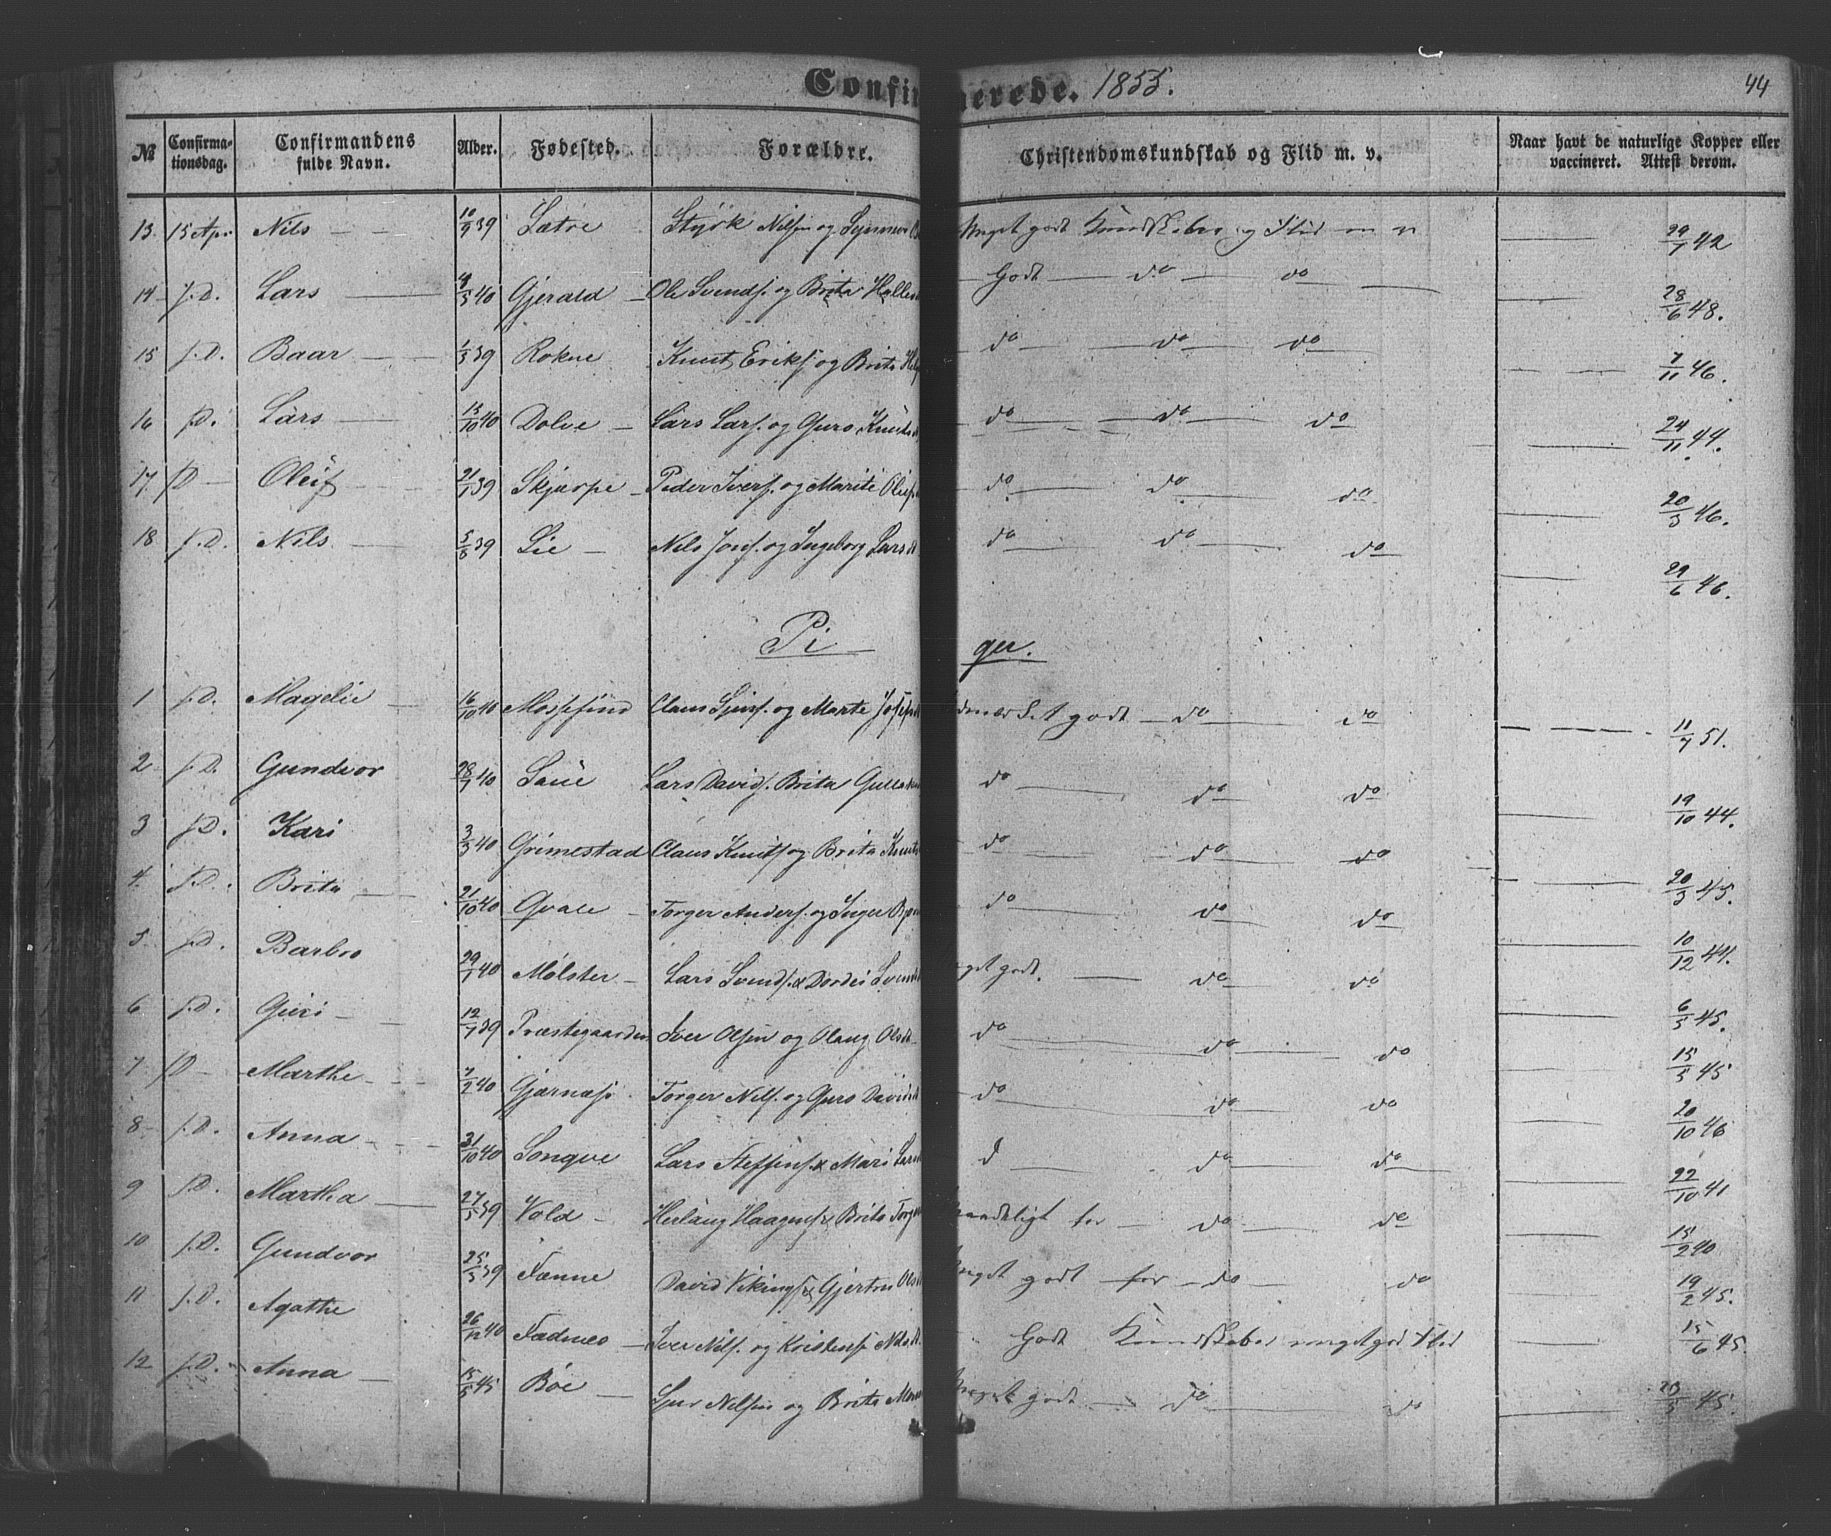 Confir merede. 1855. 44
№ Confirma-tionsdag. Confirmandens fulde Navn. Alder. Fødested. Forældre. Christendomskundskab og Flid m. v. Naar havt de naturlige Kopper eller vaccineret. Attest derom.
13. 15 Apr Nils 10/9 39 Sætre Styrk Nilsen og Meget godt Kundskaber og Flid 29/7 42
14 f.D. Lars 40 Gjerald Ole Svends. og Brita Godt do do 28/6 48.
15 f.D. Baar 1/3 39 Rokne Knut Eriks. og Brita do do do 7/11 46.
16 f.D. Lars 15/10 40 Dolve Lars Lars. og Guro Knuts do do do 24/11 44.
17 D Oluf 21/1 39 Skjærpe Peder Ivers. og Marite do do do 20/3 46.
18 f.D. Nils 5/8 39 Lie Nils Jons. og Ingeborg Lars do do do 29/6 46.
Pi ger.
1 f.D. Magelie 16/10 40 Mossefind Claus Sjurs. og Marte godt do do 11/7 51.
2 f.D. Gundvor 28/7 40 Saue Lars Davids. Brita do do do 19/10 44.
3 f.D. Kari 3/3 40 Grimestad Claus Knuts og Brita Knuts do do do 20/3 45.
4. f.D. Brita 21/10 40 Qvale Torger Anders. og Inger do do do 10/12 44.
5 f.D. Barbro 29/1 40 Mølster Lars Svends. & Dordei Svend get godt. do do 6/5 45.
6 f.D. Guri 12/1 39 Præstegaarden Iver Olsen og Olaug Olsd do do do 15/5 45
7 D Marthe 7/2 40 Gjærnæs Torger Nils. og Guro Davids do do do 20/10 46
8 f.D. Anna 31/10 40 Songve Lars Steffens. & Mari Lars d do do 22/10 41
9 f.D. Martha 27/5 39 Vold Herlaug Haagens & Brita Torge maadeligt for do do 15/2 40
10 f.D. Gundvor 25/3 39 Tænne David Vikings & Gjertru Ols meget godt for do do 19/2 45.
11 f.D. Agathe 26/12 40 Fadnes Iver Nils. og Kristense Nils Godt Kundskaber meget god Flid 15/6 45.
12 f.D. Anna 15/5 45 Bøe Sjur Nilsen og Brita meget godt do do 23/3 45.